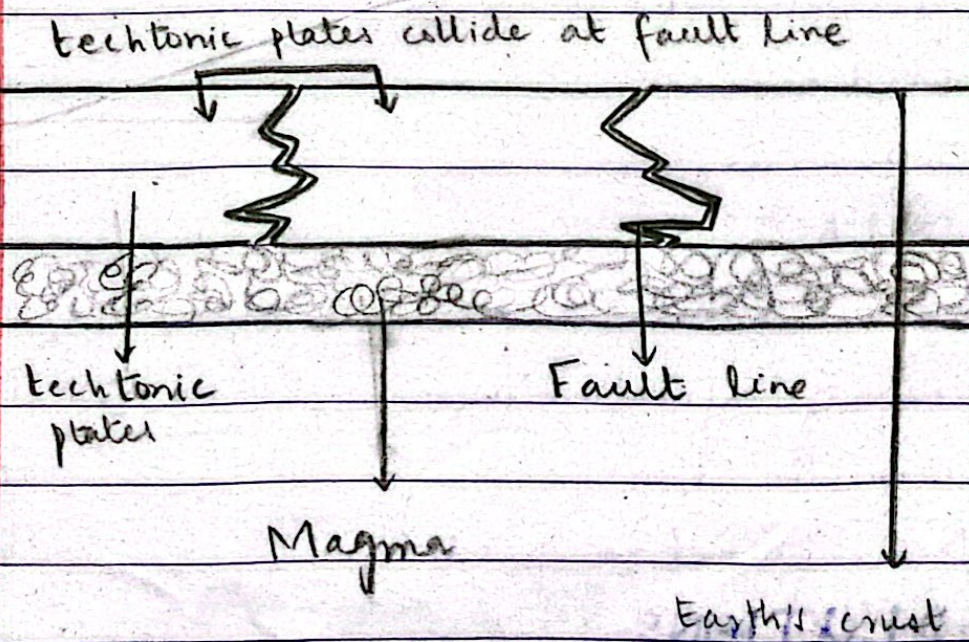 techtonic plates collide at fault line
techtonic
plates
Fault line
Magma
Earth's crust